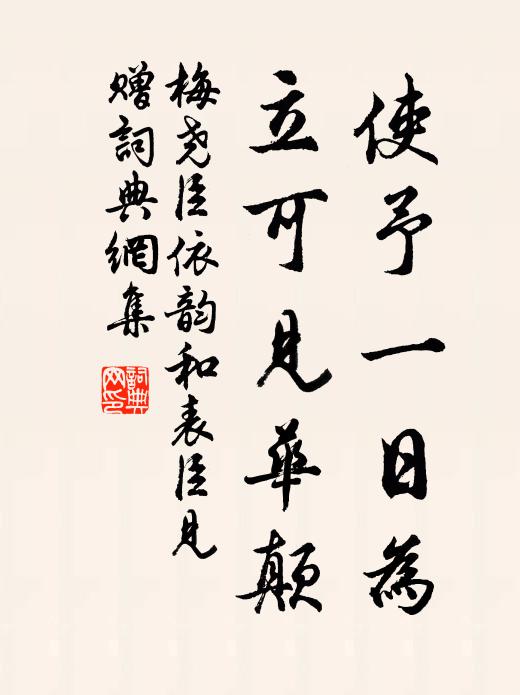 使予一日為
立可見華顛
梅尧臣依韵和表臣見
贈詞典網集
詞典網印